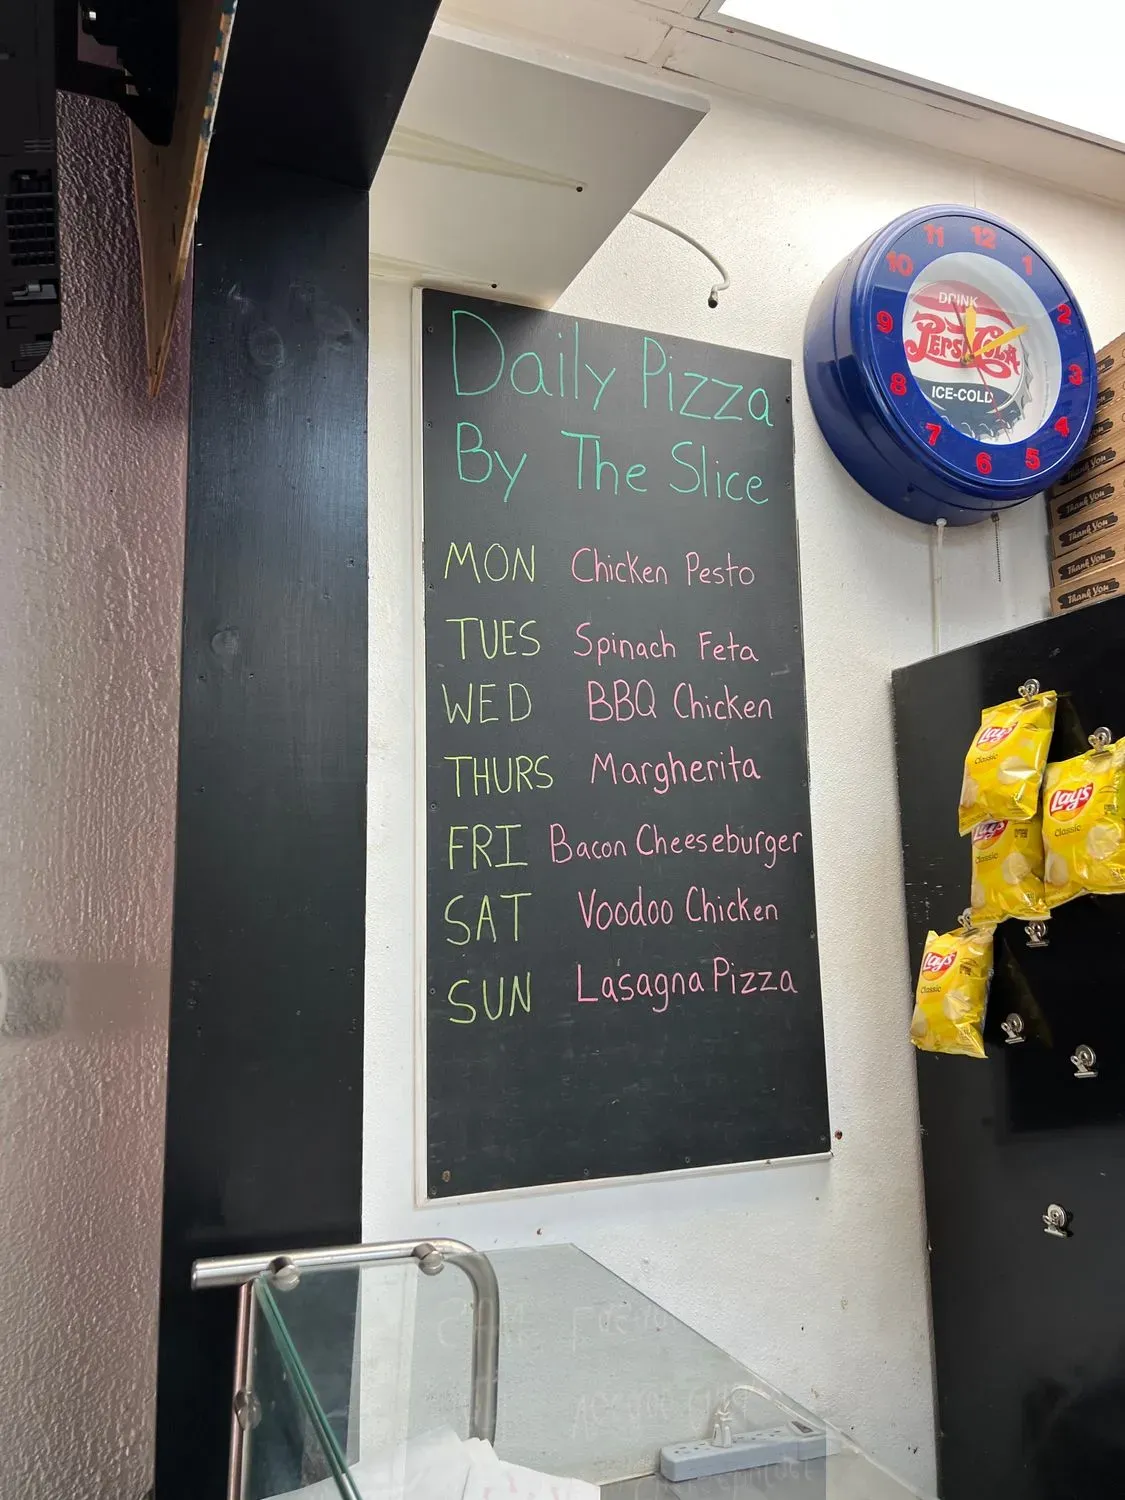 Daily Pizza
By The Slice
MON Chicken Pesto
TUES Spinach Feta
WED BBQ Chicken
THURS Margherita
FRI Bacon Cheeseburger
SAT Voodoo Chicken
SUN Lasagna Pizza
11 12 1
10 2
9 3
8 4
7 6 5
DRINK
PEPSI-COLA
ICE-COLD
Thank You
Thank You
Thank You
Thank You
Thank You
Lay's
Classic
Lay's
Classic
Lay's
Classic
Lay's
Classic